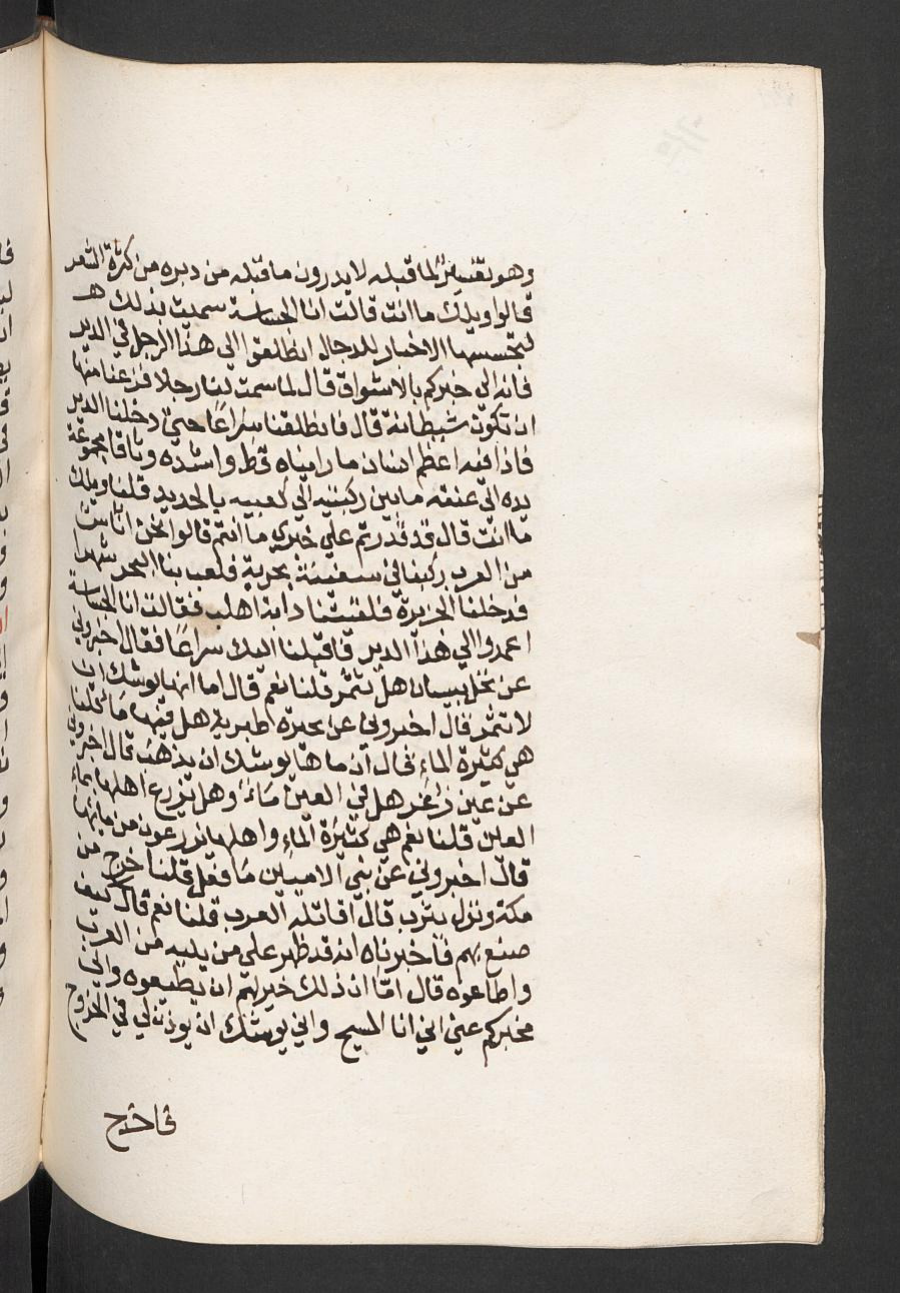 وهو تفسير لما قبله لا يدرون ما قبله من دبره من كثرة الشعر
قالوا ويلك ما انت قالت انا الجساسة سميت بذلك
لتجسسها الاخبار للدجال انطلقوا الى هذا الرجل في الدير
فانه الى خبركم بالاشواق قال لما سمت لنا رجلا فزعنا منها
ان تكون شيطانة قال فانطلقنا سراعًا حتى دخلنا الدير
فاذا فيه اعظم انسان ما رايناه قط واشده وثاقا مجموعة
يده الى عنقه ما بين ركبتيه الى كعبيه بالحديد قلنا ويلك
ما انت قال قد قدرتم على خبري ما انتم قالوا نحن اناس
من العرب ركبنا في سفينة بحرية فلعب بنا البحر شهرا
فدخلنا الجزيرة فلقيتنا دابة اهلب فقالت انا الجساسة
اعمدوا الى هذا الدير فاقبلنا اليك سراعًا فقال اخبروني
عن نخل بيسان هل تثمر قلنا نعم قال اما انها يوشك ان
لا تثمر قال اخبروني عن بحيرة اطبرية هل فيها ماء قلنا
هي كثيرة الماء قال ان ماها يوشك ان يذهب قال اخبروني
عن عين زغر هل في العين ماء وهل يزرع اهلها بماء
العين قلنا نعم هي كثيرة الماء واهلها يزرعون من مائها
قال اخبروني عن نبي الاميين ما فعل قلنا خرج من
مكة ونزل يثرب قال اقاتله العرب قلنا نعم قال كيف
صنع بهم فاخبرناه انه قد ظهر على من يليه من العرب
واطاعوه قال امّا ان ذلك خير لهم ان يطيعوه واني
مخبركم عني اني انا المسيح واني يوشك ان يوذن لي في الخروج
فاخرج